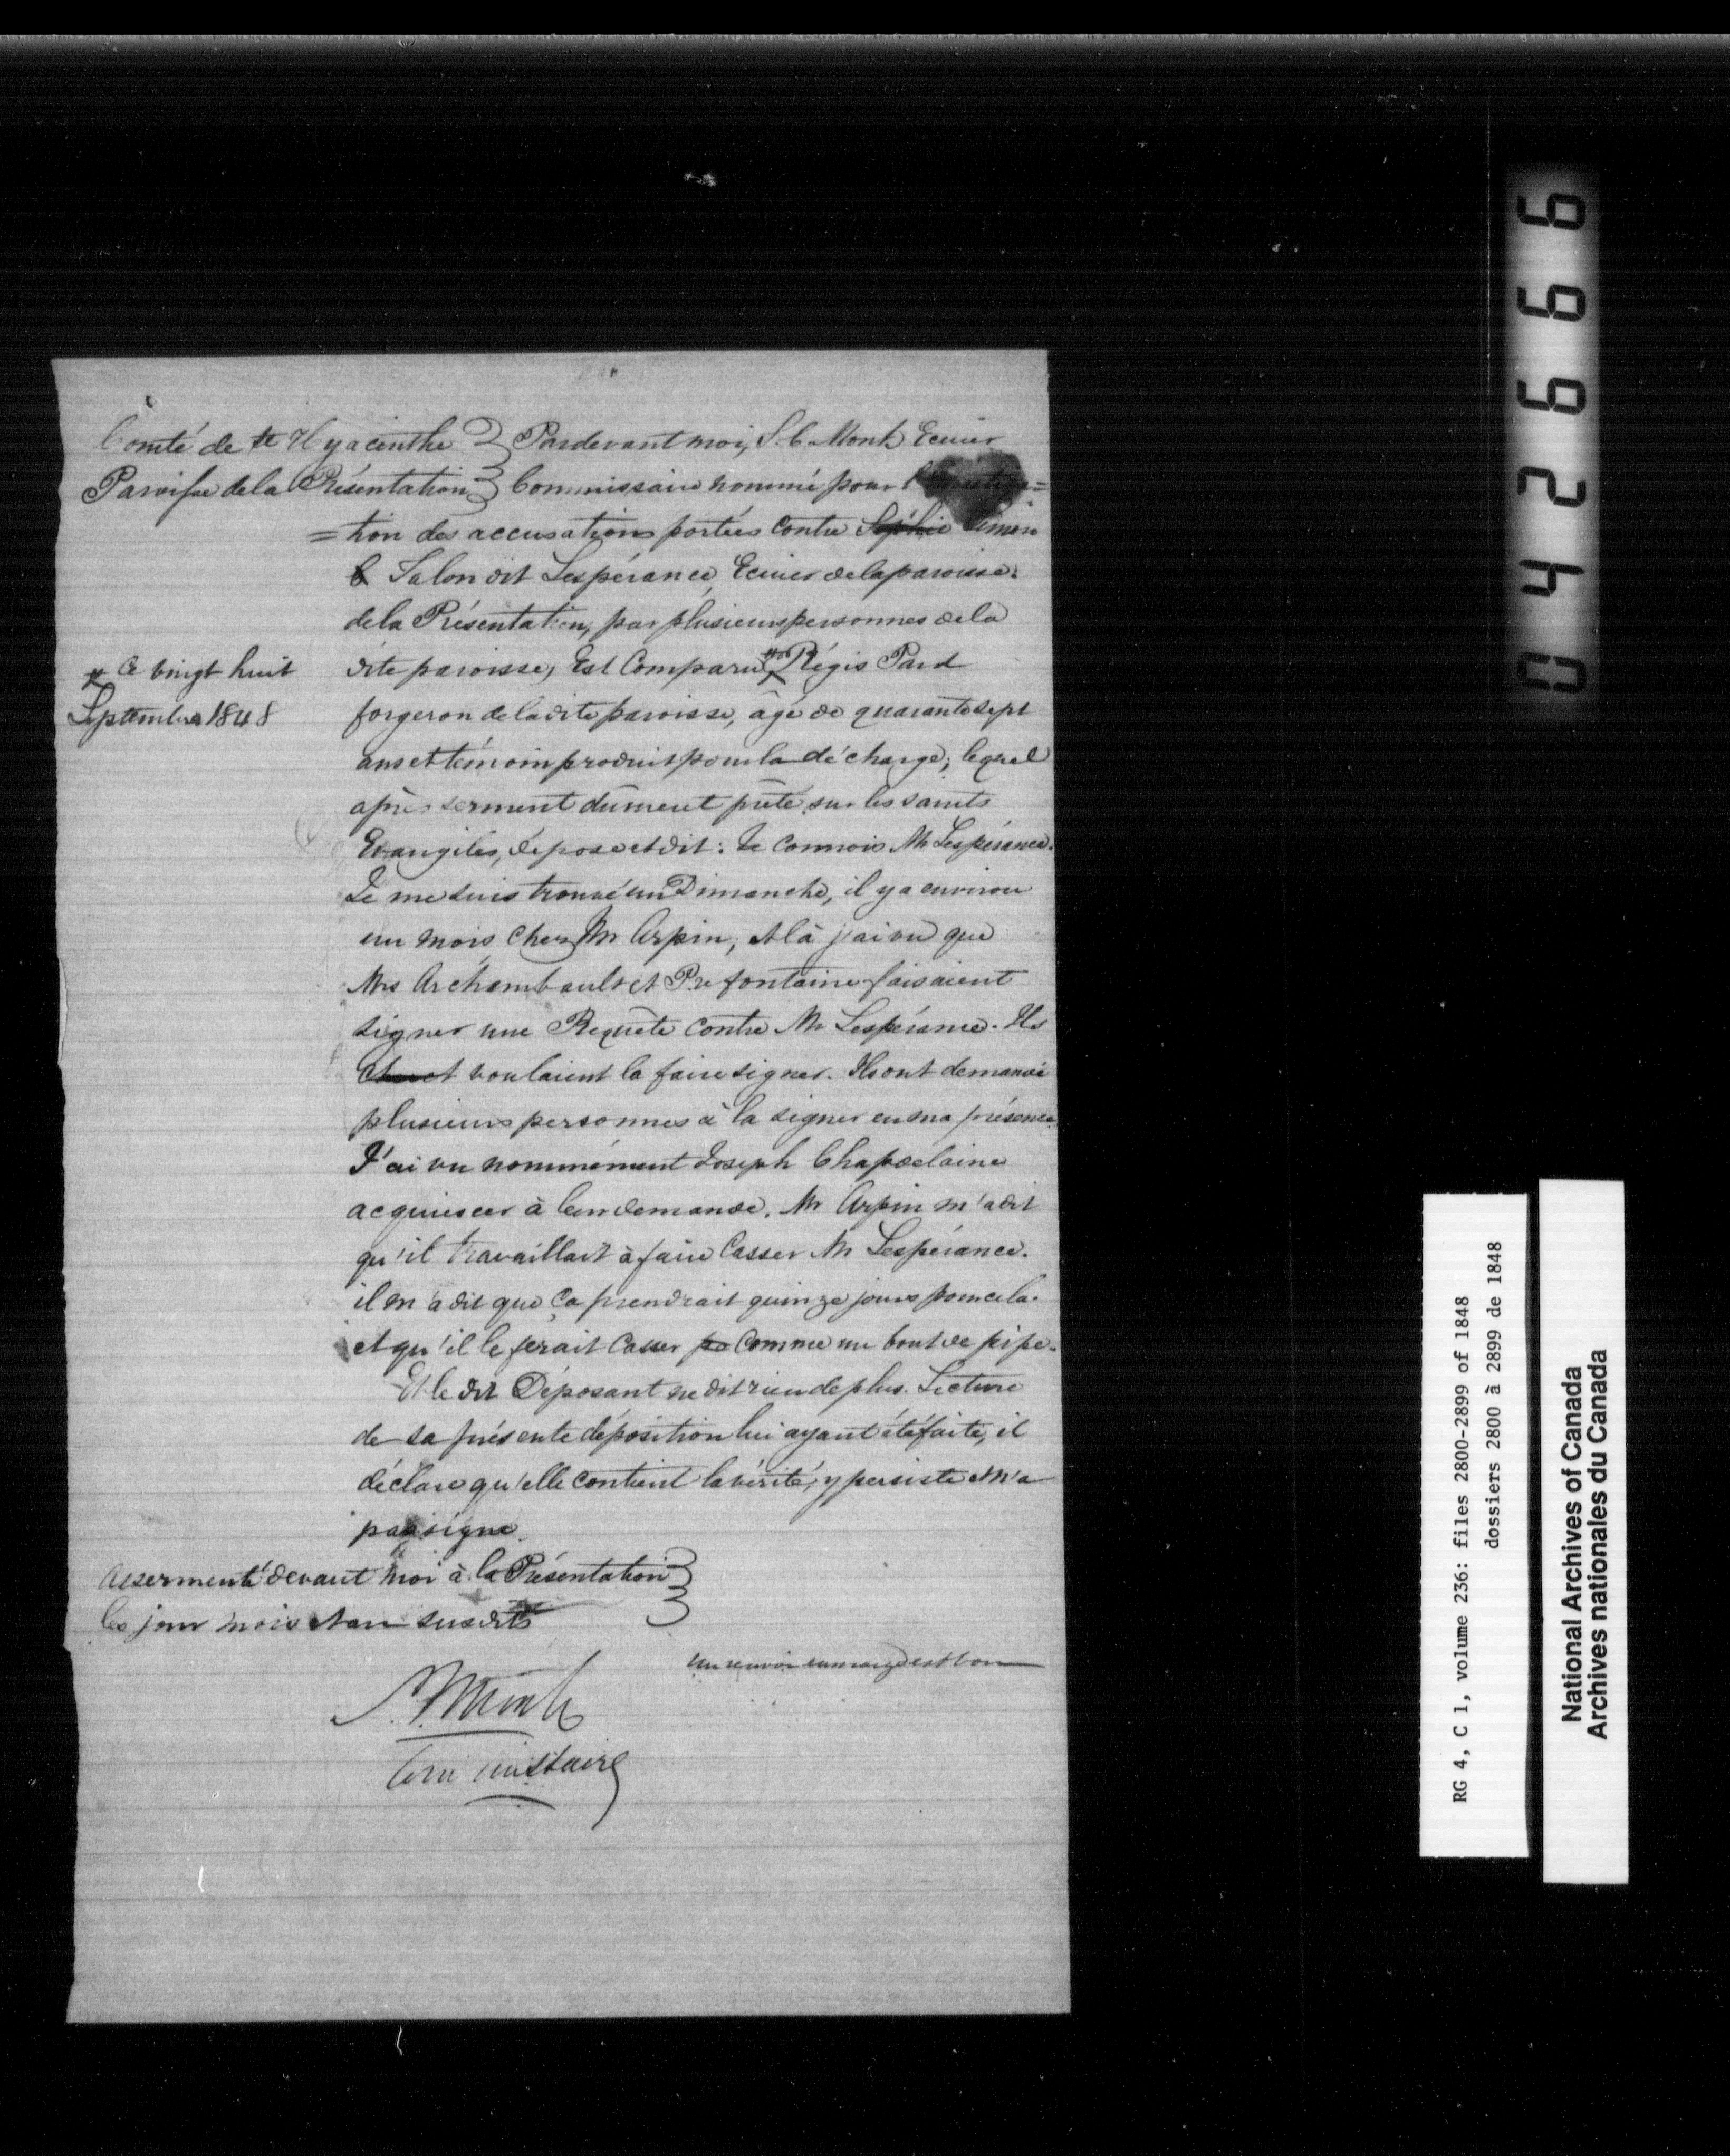 Comté de St Hyacinthe } Pardevant moi, S. C. Monk Ecuier
Paroisse de la Présentation } Commissaire nommé pour l'investiga=
=tion des accusations portées contre Sophie Simon
& Talon dit Lespérance, Ecuier de la paroisse
de la Présentation, par plusieurs personnes de la
dite paroisse, Est Comparu # Régis Paré
# Ce vingt huit
Septembre 1848
forgeron de la dite paroisse, âgé de quarante sept
ans et témoin produit pour la décharge; lequel
après serment dûment prêté sur les saints
Evangiles, dépose et dit: Je connois Mr Lespérance.
Je me suis trouvé un Dimanche, il y a environ
un mois chez Mr Arpin, et là j'ai vu que
Mrs Archambault et Prefontaine faisaient
signer une Requête contre Mr Lespérance. Ils
et voulaient la faire signer. Ils ont demandé
plusieurs personnes à la signer en ma présence
J'ai vu nommément Joseph Chapdelaine
acquiescer à leur demande. Mr Arpin m'a dit
qu'il travaillait à faire Casser Mr Lespérance.
il m'a dit que ça prendrait quinze jours pour cela.
et qu'il le ferait Casser po comme un bout de pipe.
Et le dit Déposant ne dit rien de plus. Lecture
de sa présente déposition lui ayant été faite, il
déclare qu'elle contient la vérité, y persiste et n'a
pas signé.
Assermenté devant moi à la Présentation }
les jour mois et an susdits }
un renvoi en marge est bon
S. C. Monk
Commissaire
042666
RG 4, C 1, volume 236: files 2800-2899 of 1848
dossiers 2800 à 2899 de 1848
National Archives of Canada
Archives nationales du Canada